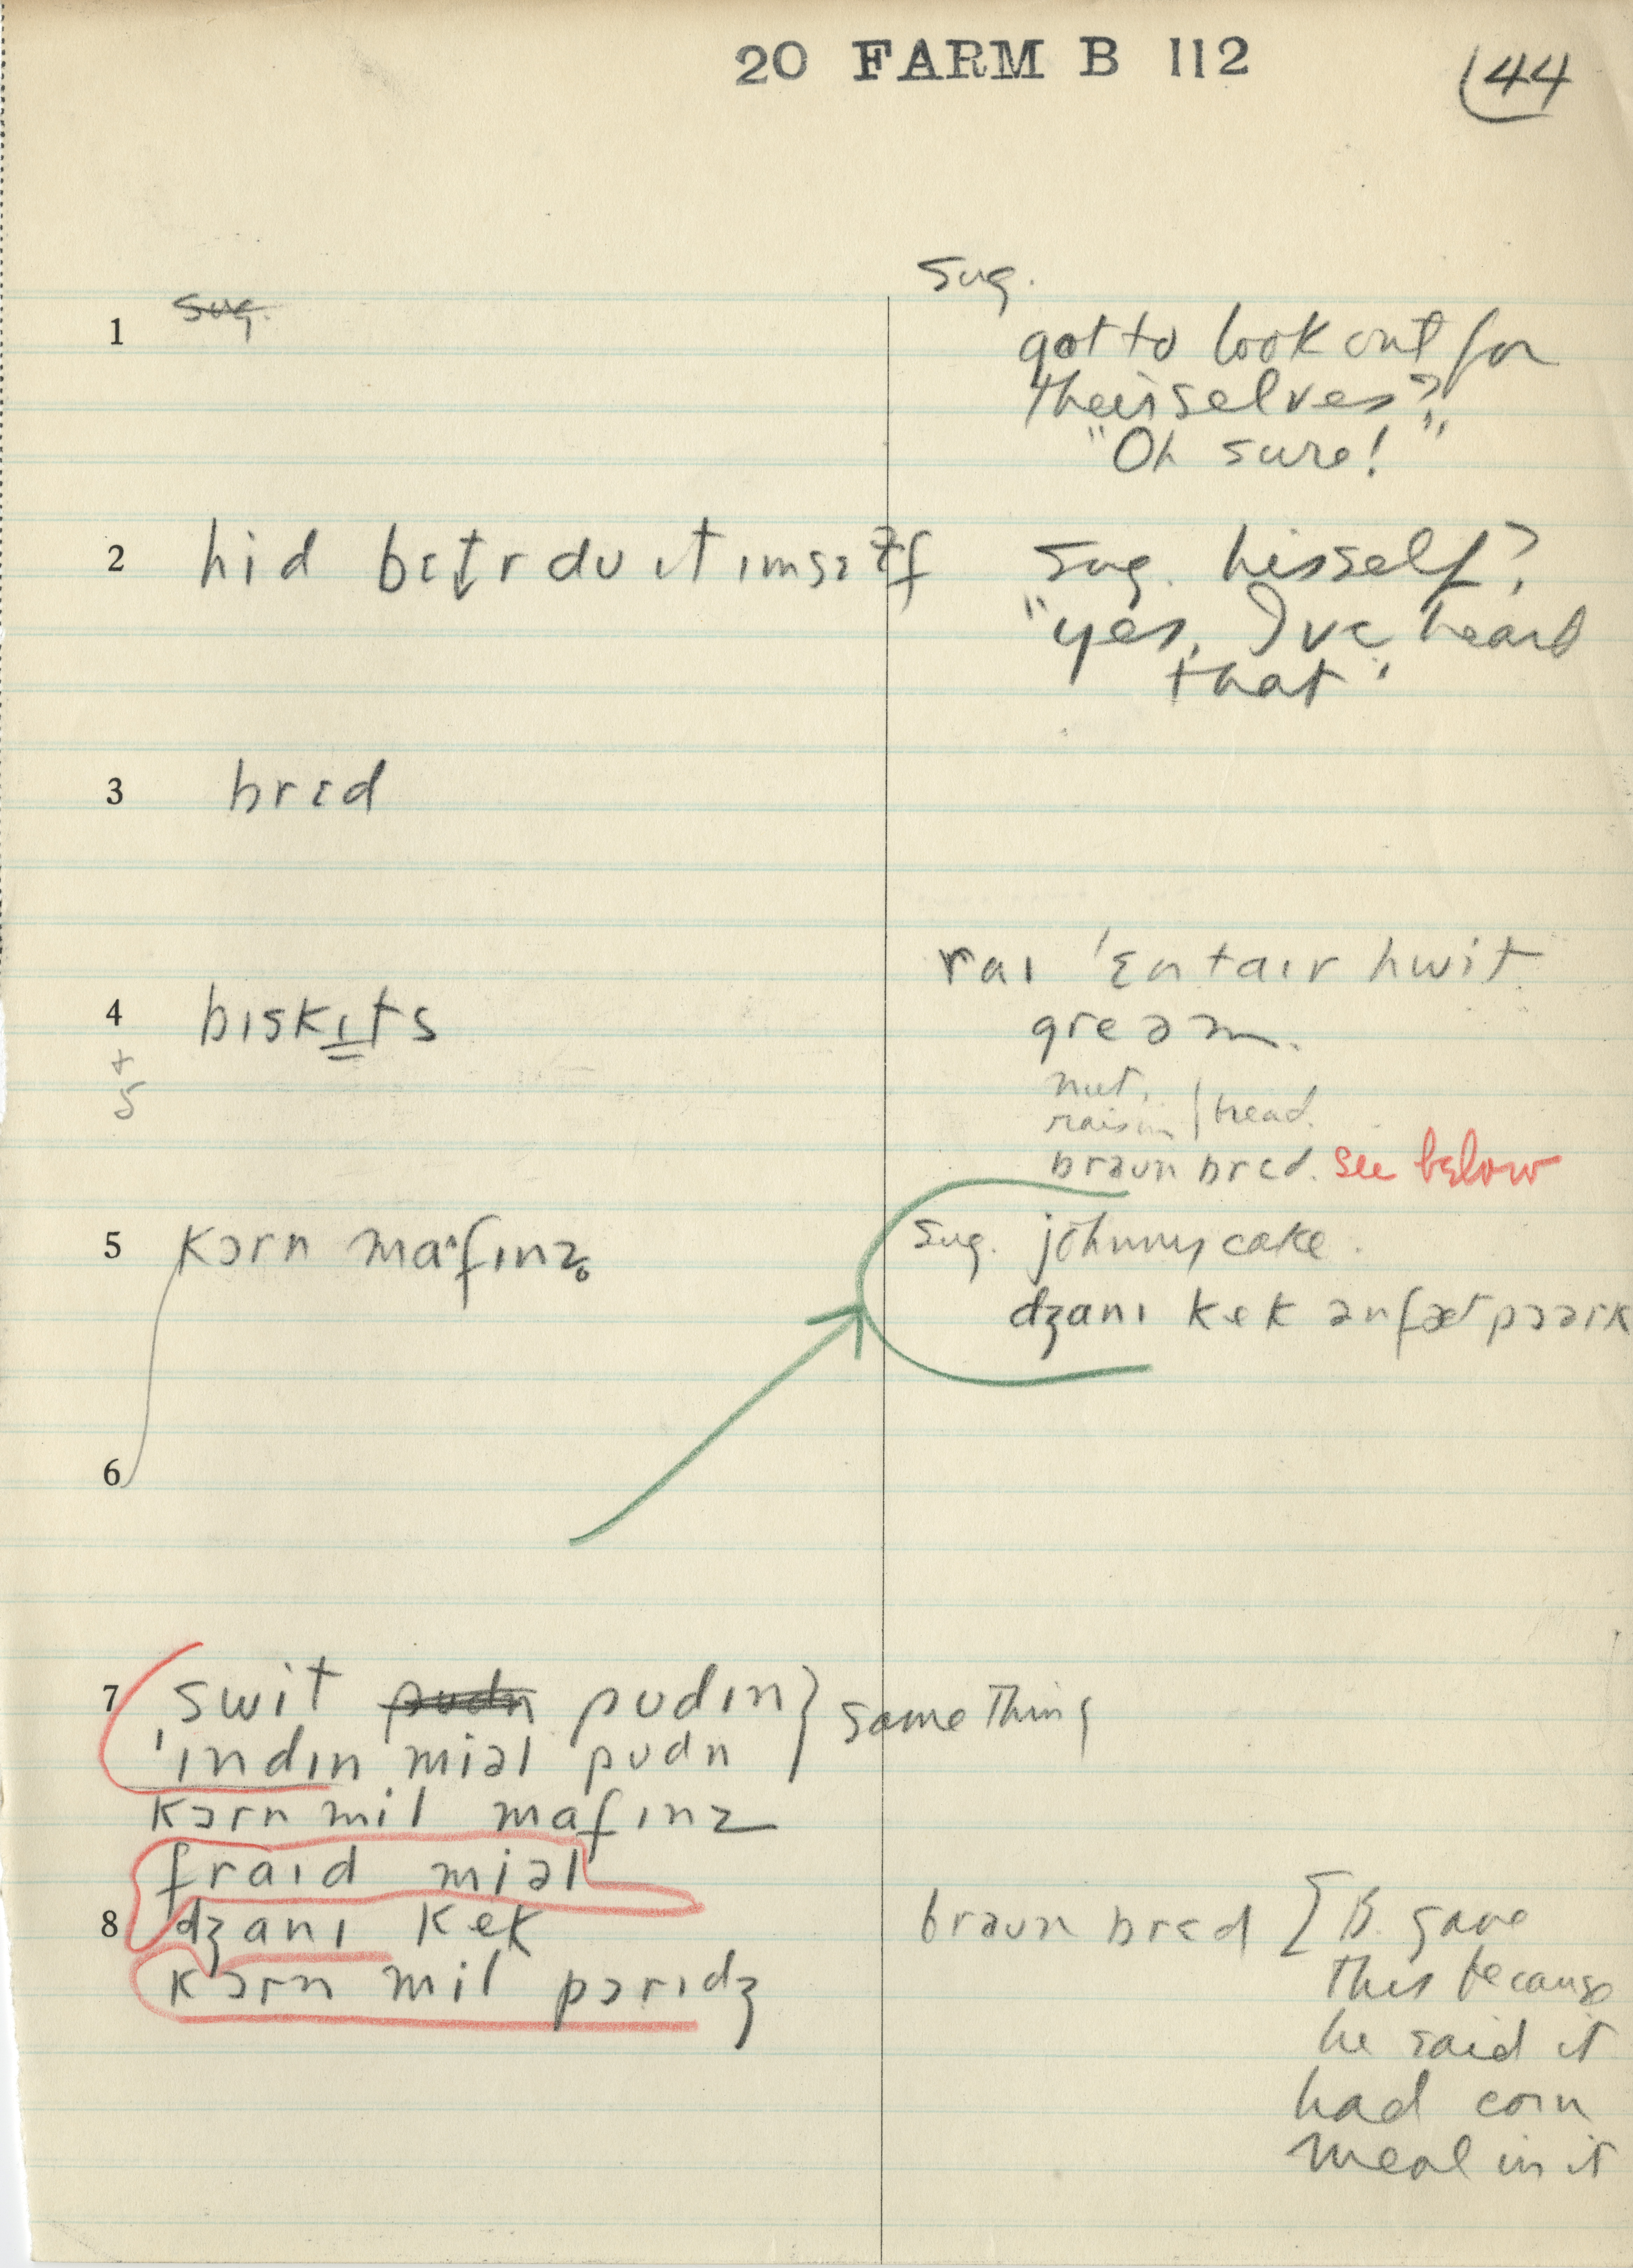 20 FARM B 112
44
1
sug.
sug.
got to look out for
theirselves?
"Oh sure!"
2 hid bɛt̬r du ɪt ɪmsɛɫf
sug. hisself?
"yes, I've heard
that".
3 brɛd
4 bɪskɪts
+
5
raɪ ˈɛntaɪr hwit
greəm.
nut,
raisin } bread.
braun brɛd. see below
5 kɔrn mafɪnz̥
sug. johnny cake.
dʒanɪ kek ənfæt pɔərk
6
7 swit pudn pudɪn } same thing
ˈɪndɪn miəl pudn
kɔrn mil mafɪnz
fraɪd miəl
8 dʒanɪ kek
kɔrn mil pɔrɪdʒ
braun brɛd [B. gave
this because
he said it
had corn
meal in it